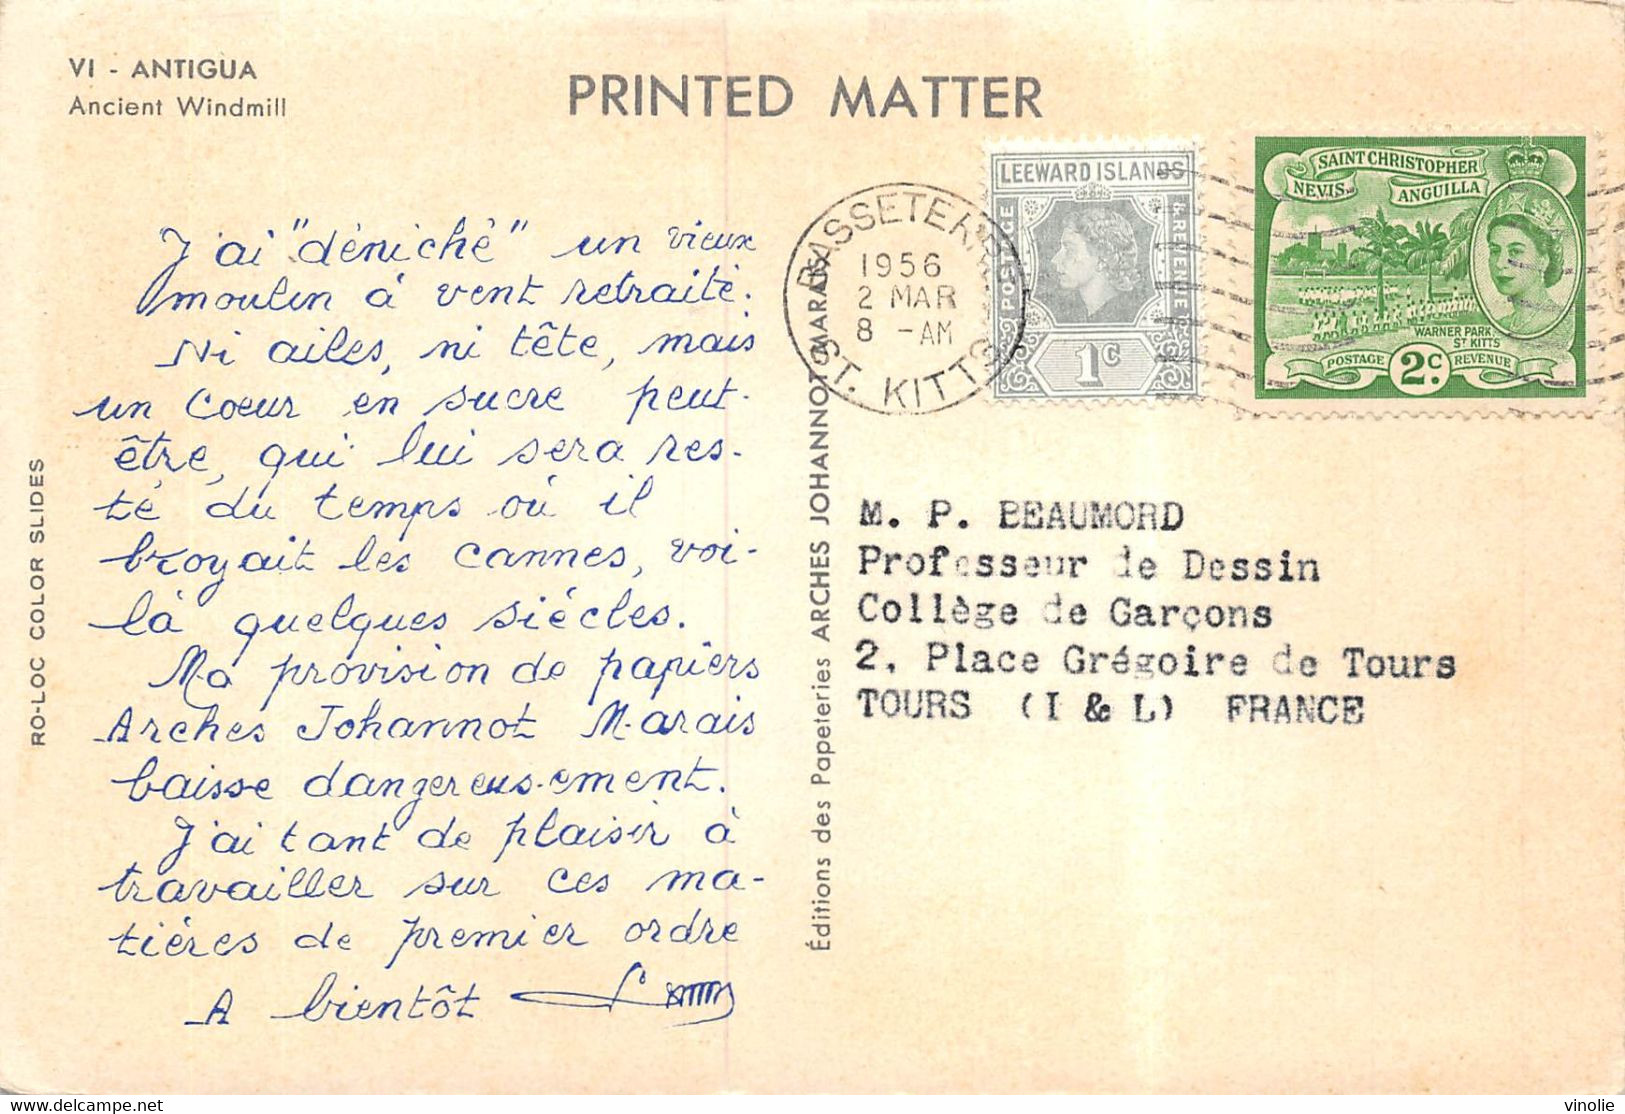 VI - ANTIGUA
Ancient Windmill
PRINTED MATTER
J'ai "déniché" un vieux
moulin à vent retraité.
Ni ailes, ni tête, mais
un coeur en sucre peut-
être, qui lui sera res-
té du temps où il
broyait les cannes, voi-
là quelques siècles.
Ma provision de papiers
Arches Johannot Marais
baisse dangereusement.
J'ai tant de plaisir à
travailler sur ces ma-
tières de premier ordre
A bientôt
RO-LOC COLOR SLIDES
Éditions des Papeteries ARCHES JOHANNOT MARAIS
BASSETERRE
1956
2 MAR
8 -AM
ST. KITTS
LEEWARD ISLANDS
POSTAGE
& REVENUE
1c
SAINT CHRISTOPHER
NEVIS
ANGUILLA
WARNER PARK,
ST KITTS
POSTAGE 2c. REVENUE
M. P. BEAUMORD
Professeur de Dessin
Collège de Garçons
2, Place Grégoire de Tours
TOURS (I & L) FRANCE
delcampe.net
vinolie